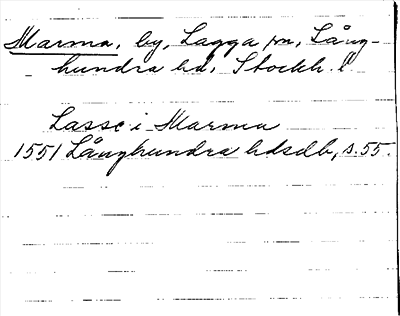 Marma, by, Lagga sn, Lång-
hundra hd, Stockh. l
Lasse i Marma
1551 Långhundra hdsdb, s. 55.